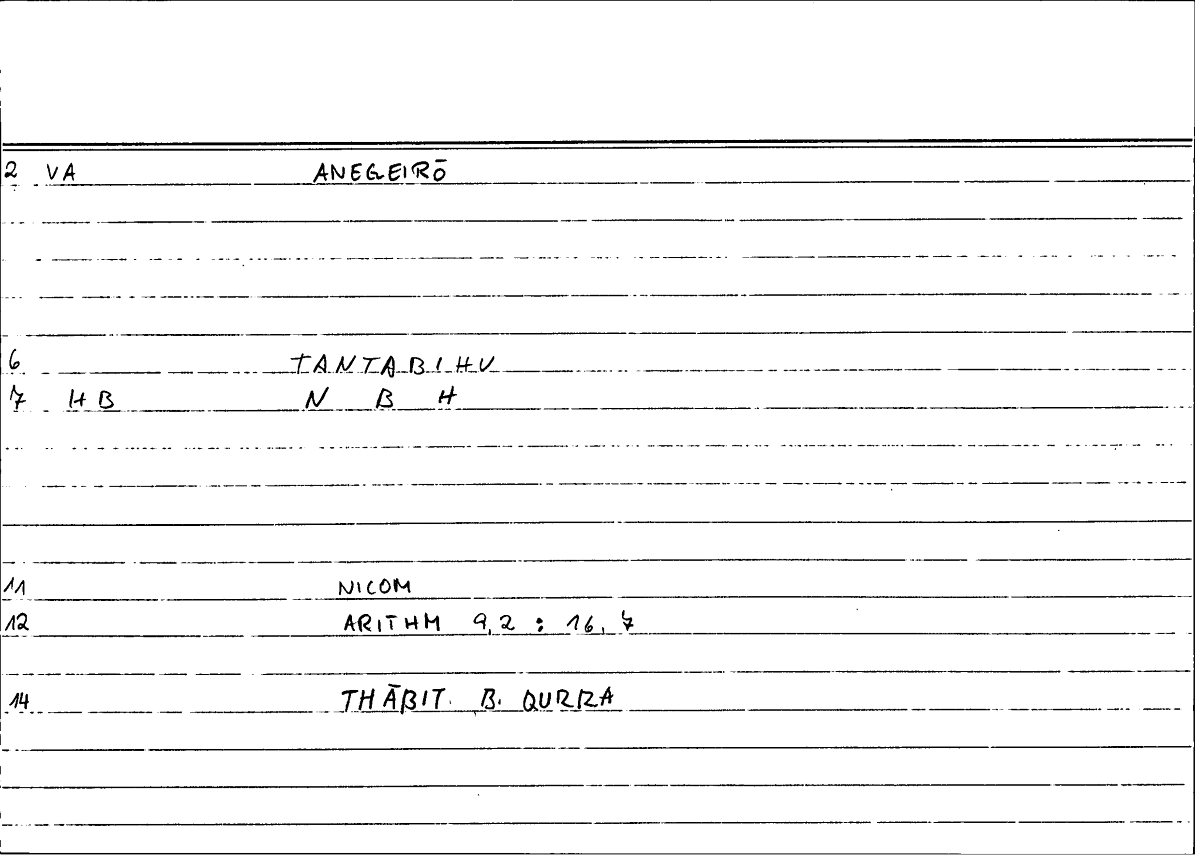 2 VA ANEGEIRŌ
6 TANTABIHU
7 HB N B H
11 NICOM
12 ARITHM 9,2 : 16,7
14 THĀBIT. B. QURRA